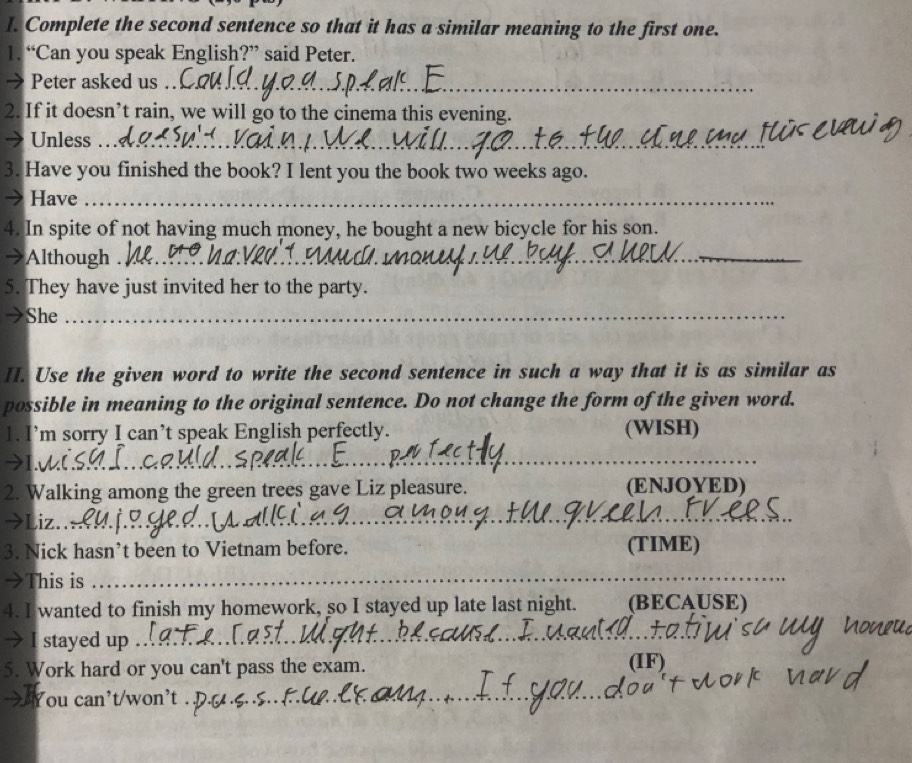 I. Complete the second sentence so that it has a similar meaning to the first one.
1. “Can you speak English?” said Peter.
→ Peter asked us ..Could you speak E....................
2. If it doesn’t rain, we will go to the cinema this evening.
→ Unless ...doesn't rain, we will go to the cinema this evening
3. Have you finished the book? I lent you the book two weeks ago.
→ Have ........................................
4. In spite of not having much money, he bought a new bicycle for his son.
→ Although .he haven't much money, he buy a new..........
5. They have just invited her to the party.
→ She ........................................
II. Use the given word to write the second sentence in such a way that it is as similar as
possible in meaning to the original sentence. Do not change the form of the given word.
1. I’m sorry I can’t speak English perfectly. (WISH)
→ I wish I could speak E perfectly....................
2. Walking among the green trees gave Liz pleasure. (ENJOYED)
→ Liz...enjoyed walking among the green trees..
3. Nick hasn’t been to Vietnam before. (TIME)
→ This is ........................................
4. I wanted to finish my homework, so I stayed up late last night. (BECAUSE)
→ I stayed up ..late last night because I wanted to finish my
5. Work hard or you can't pass the exam. (IF)
→ You can’t/won’t ..pass the exam... If you don't work hard